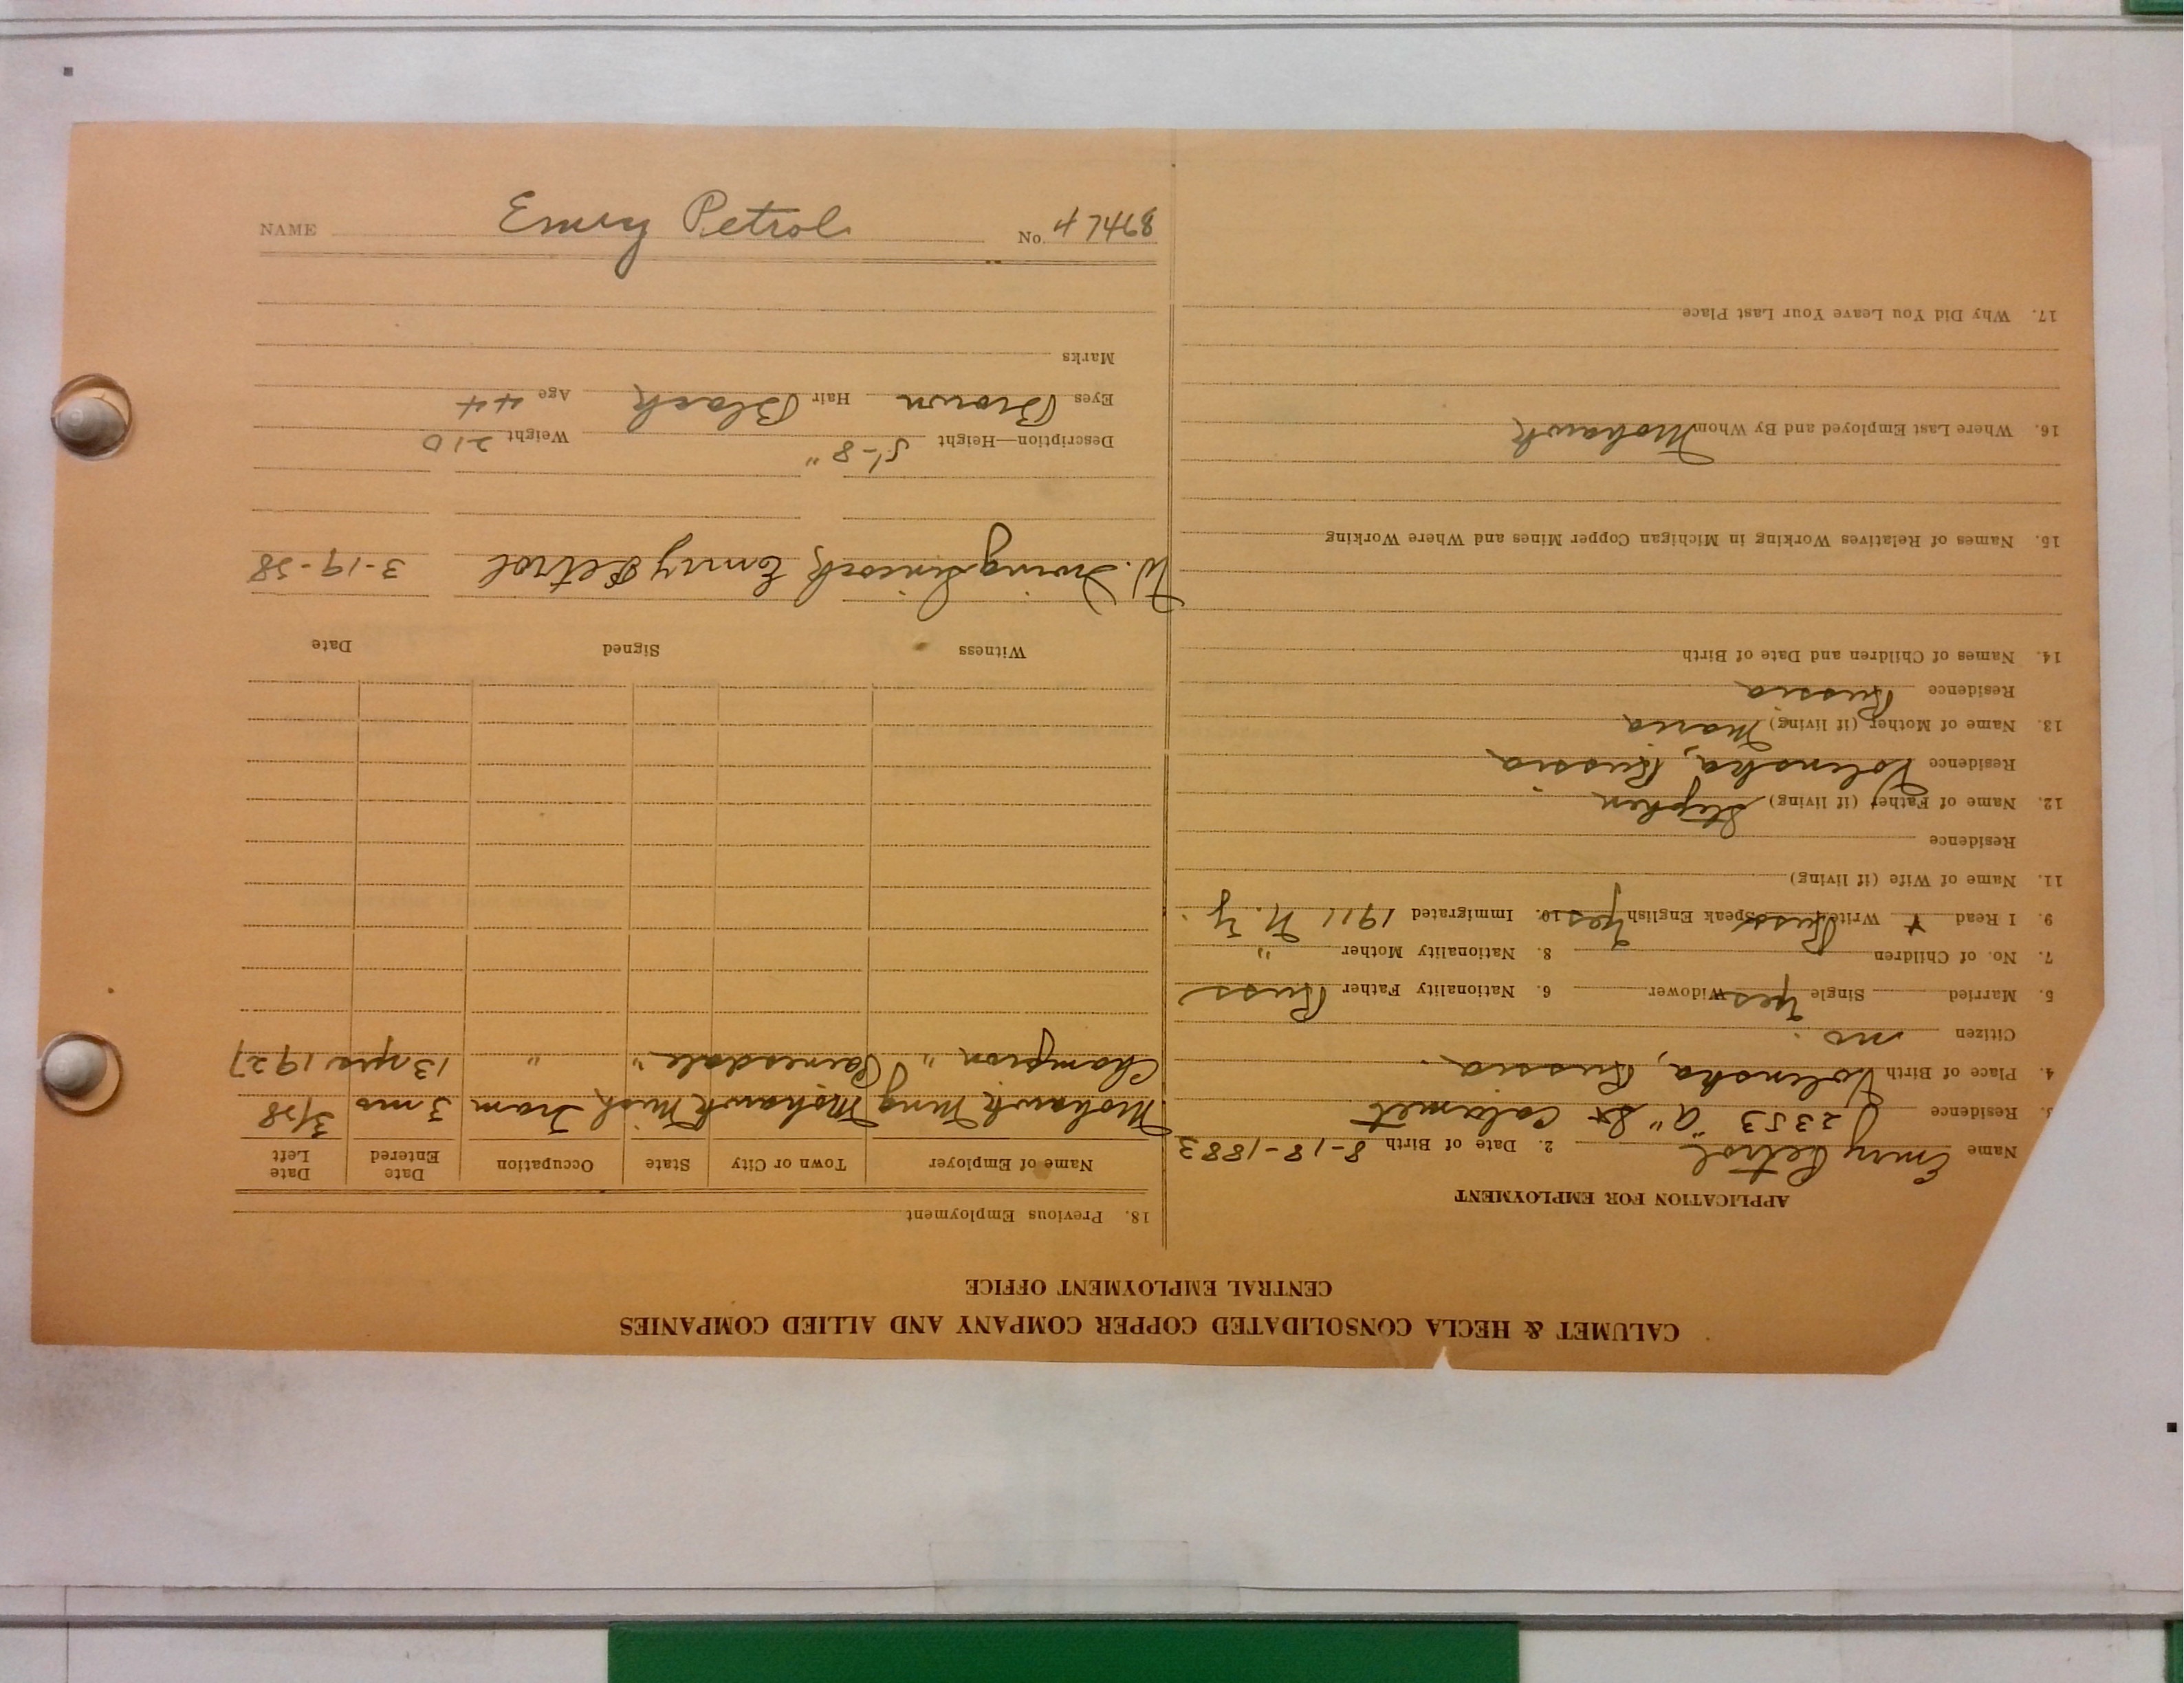 NAME Emry Petrol No. 47468
CALUMET & HECLA CONSOLIDATED COPPER COMPANY AND ALLIED COMPANIES
CENTRAL EMPLOYMENT OFFICE
APPLICATION FOR EMPLOYMENT
Name Emry Petrol 2. Date of Birth 8-18-1883
3. Residence 2353 "A" St Calumet
4. Place of Birth Volinska, Russia.
Citizen no.
5. Married Single Yes Widower 6. Nationality Father Russ
7. No. of Children 8. Nationality Mother "
9. I Read + Write Russ Speak English Yes 10. Immigrated 1911 N.Y.
11. Name of Wife (if living)
Residence
12. Name of Father (if living) Stephen
Residence Volinska, Russia
13. Name of Mother (if living) Maria
Residence Russia
14. Names of Children and Date of Birth
15. Names of Relatives Working in Michigan Copper Mines and Where Working
16. Where Last Employed and By Whom Mohawk
17. Why Did You Leave Your Last Place
18. Previous Employment
Name of Employer Town or City State Occupation Date Entered Date Left
Mohawk Mng Mohawk Mich Tram 3 mo 3/28
Champion " Painesdale " " 13 yrs 1927
Witness Signed Date
W. Irving Emry Petrol 3-19-28
Description—Height 5'-8" Weight 210
Eyes Brown Hair Black Age 44
Marks